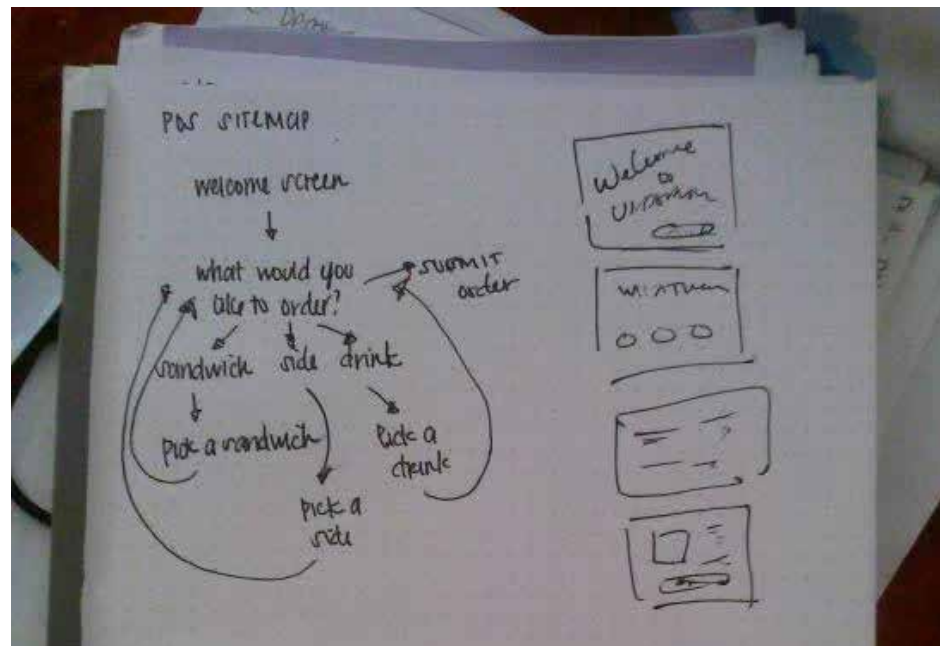 POS SITEMAP
welcome screen
what would you
like to order?
submit
order
sandwich side drink
pick a sandwich
pick a
drink
pick a
side
Welcome
to